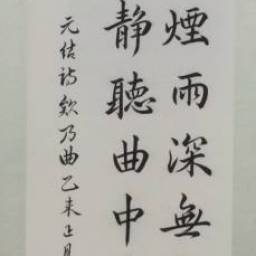 煙雨深無
靜聽曲中
元结詩欸乃曲乙未正月